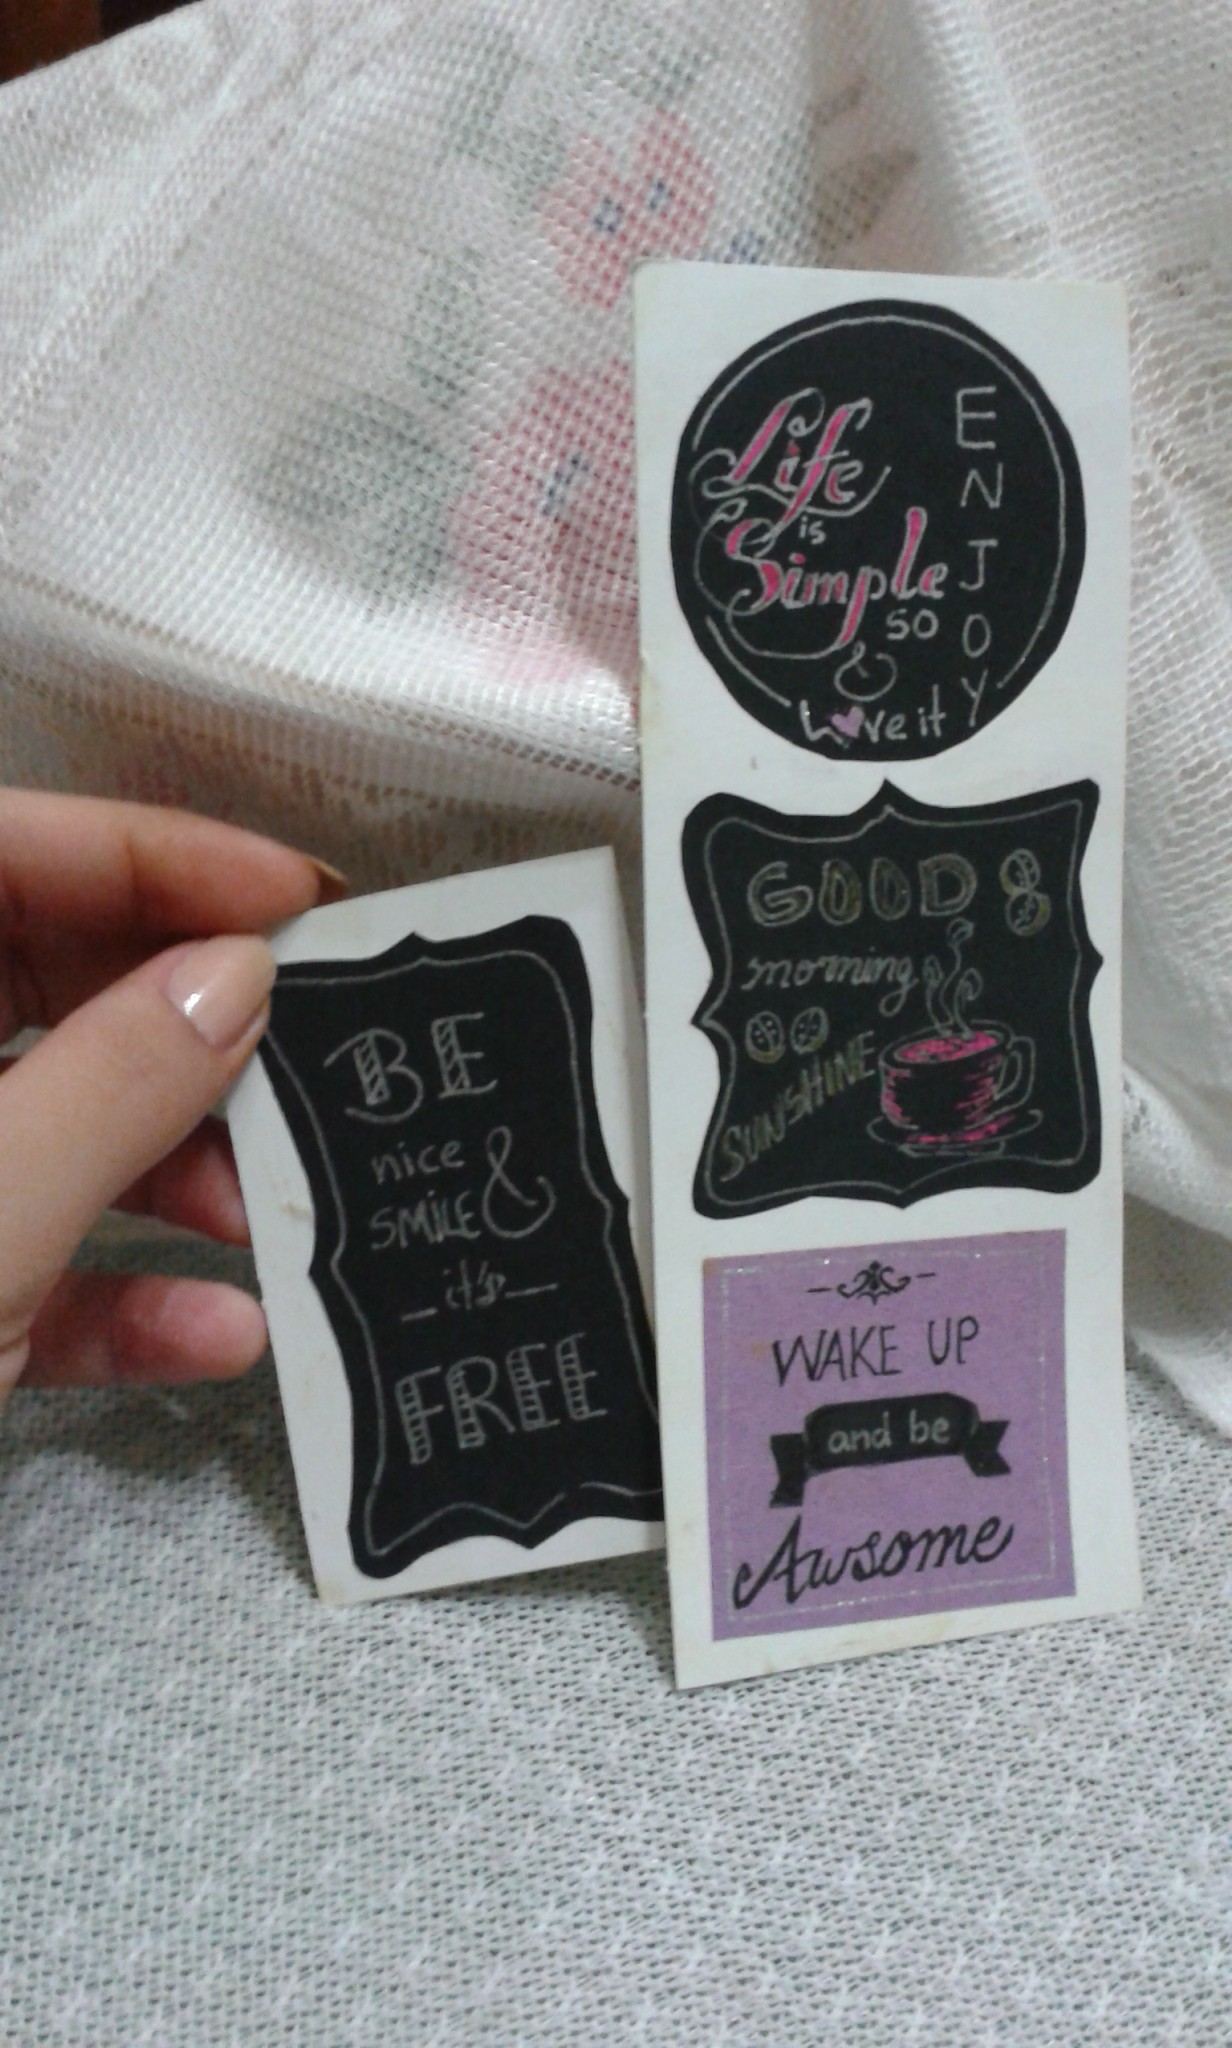 BE
nice &
SMILE
it's
FREE
Life
is
Simple
so
ENJOY
&
Love it
GOOD
morning
SUNSHINE
WAKE UP
and be
Awsome